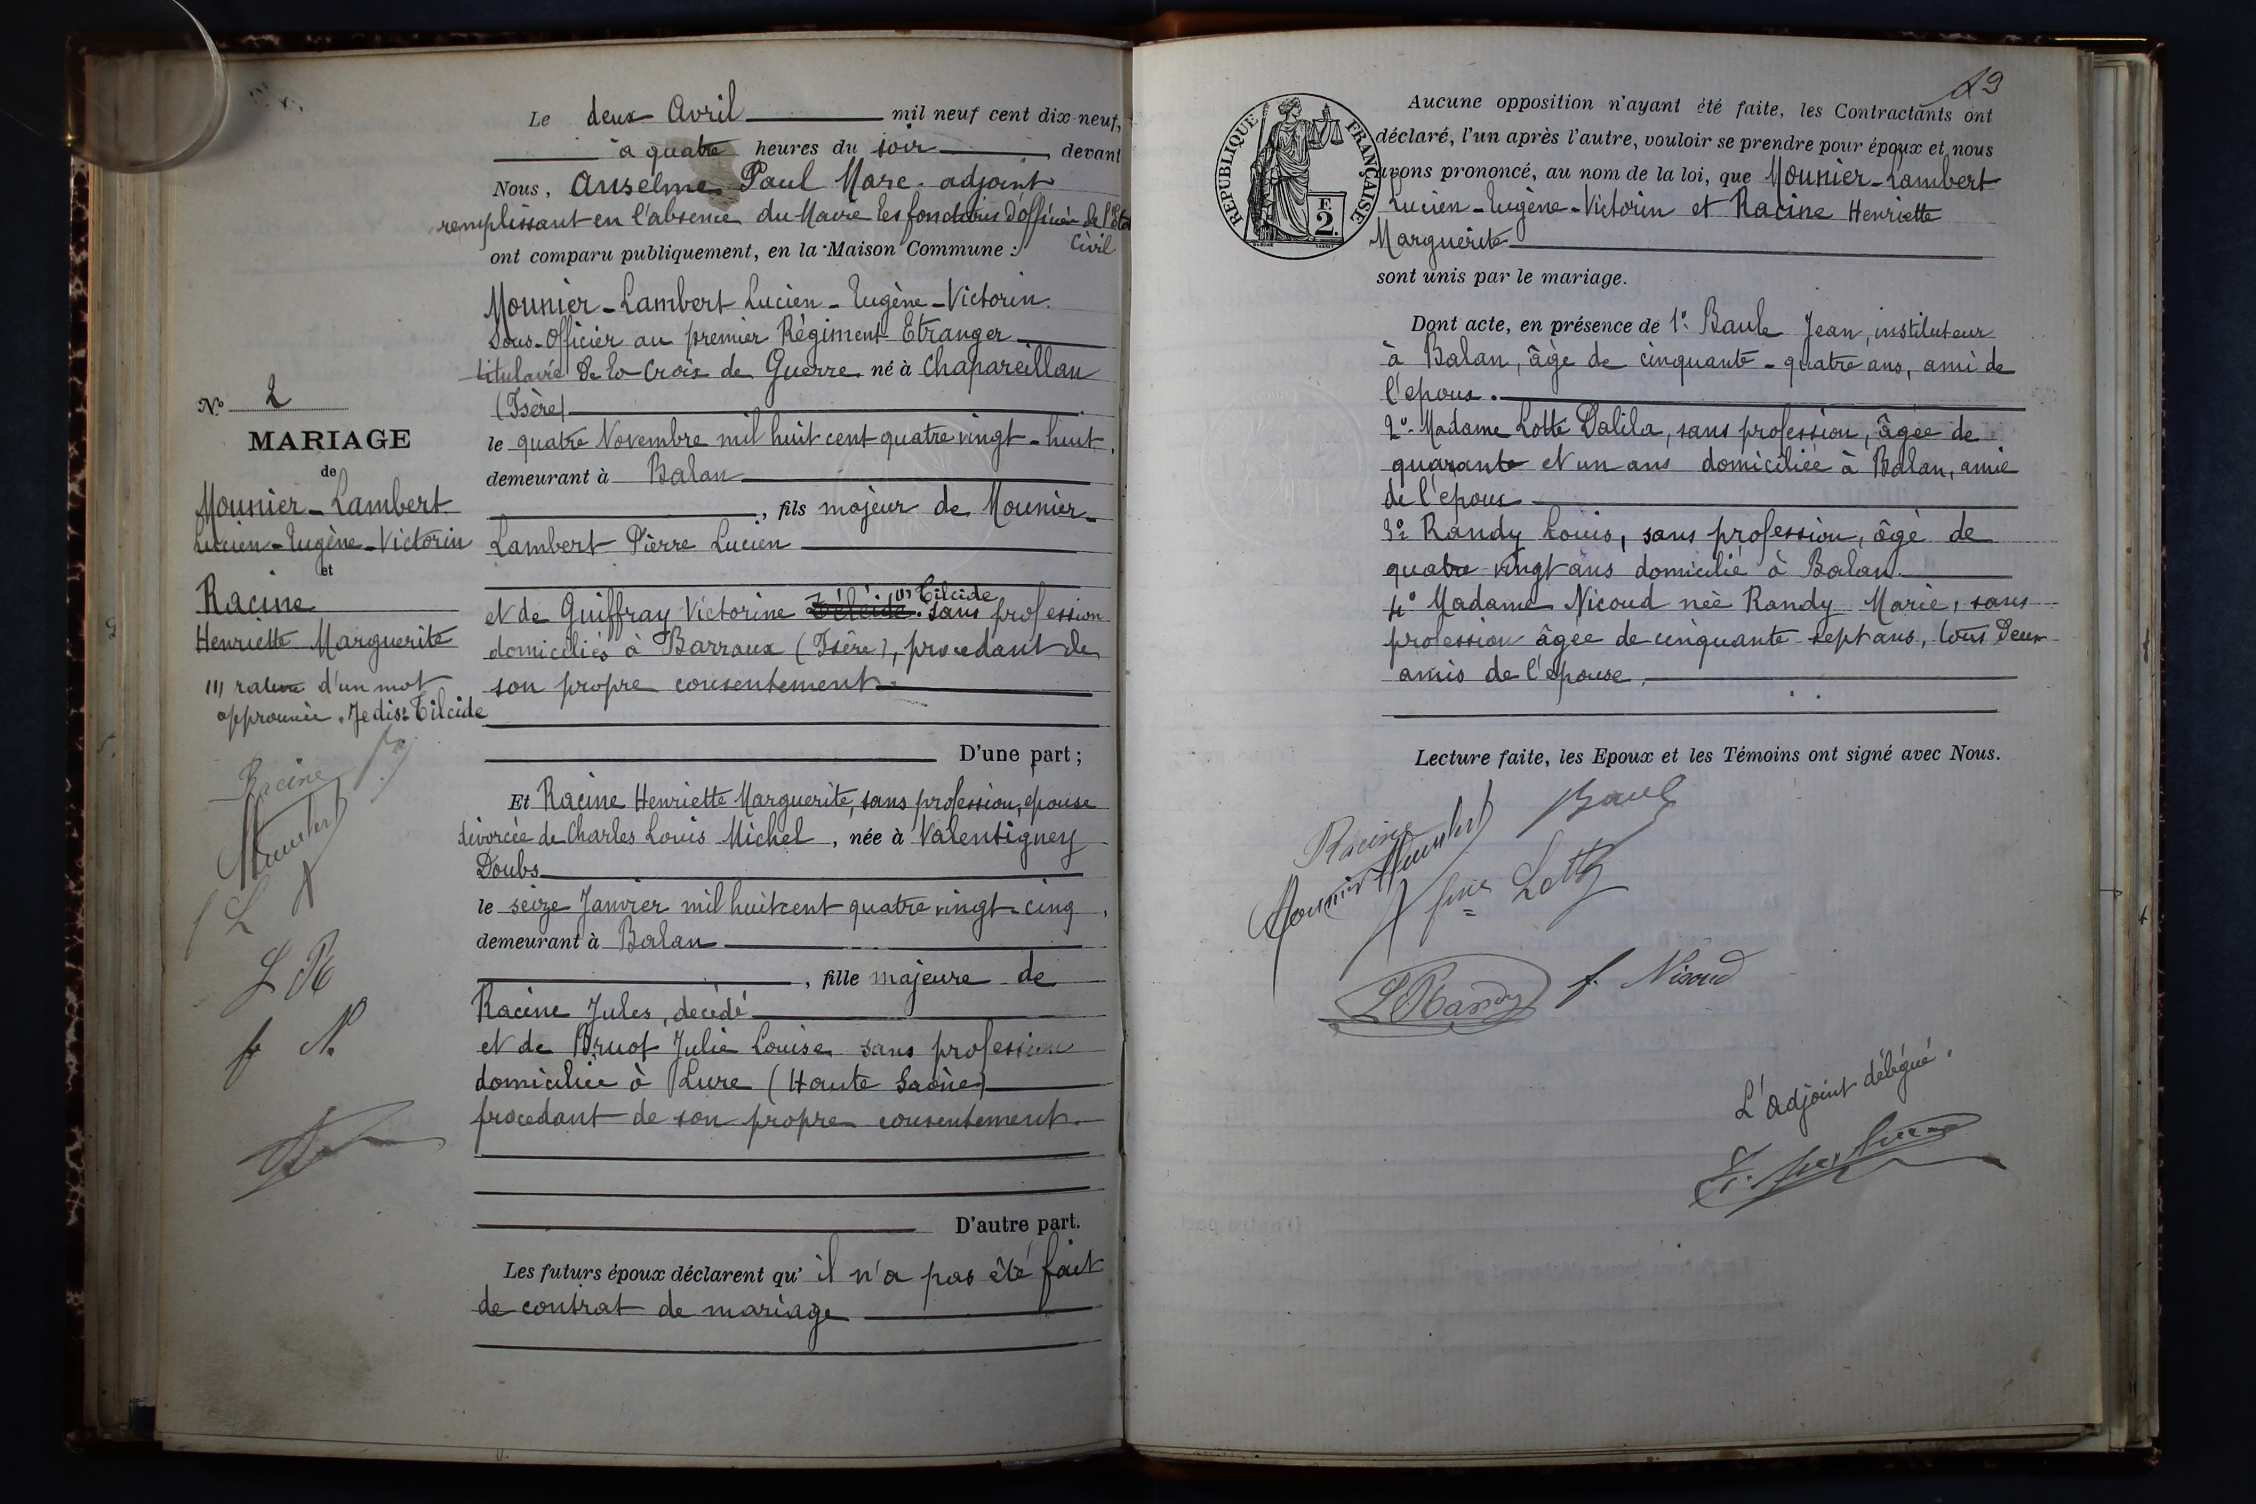 Le deux Avril mil neuf cent dix-neuf,
à quatre heures du soir devant
Nous, Anselme Paul Marc adjoint
remplissant en l'absence du Maire les fonctions d'officier de l'Etat
Civil
ont comparu publiquement, en la Maison Commune :
Mounier-Lambert Lucien-Eugène-Victorin
Sous-Officier au premier Régiment Etranger
titulaire de la Croix de Guerre né à Chapareillan
(Isère)
le quatre Novembre mil huit cent quatre vingt-huit,
demeurant à Balan
, fils majeur de Mounier-
Lambert Pierre Lucien
(1) Tilcide
et de Guiffray Victorine Zélcide. sans profession
domiciliés à Barraux (Isère), procedant de
son propre consentement.
D'une part ;
Et Racine Henriette Marguerite, sans profession, epouse
divorcée de Charles Louis Michel, née à Valentigney
Doubs
le seize Janvier mil huit cent quatre vingt-cinq,
demeurant à Balan
, fille majeure de
Racine Jules, decédé
et de Bruot Julie Louise sans profession
domiciliée à Lure (Haute Saône)
procedant de son propre consentement.
D'autre part.
Les futurs époux déclarent qu' il n'a pas été fait
de contrat de mariage
N° 2
MARIAGE
de
Mounier-Lambert
Lucien-Eugène-Victorin
et
Racine
Henriette Marguerite
(1) rature d'un mot
approuvée. Je dis: Tilcide
Racine
L
L R
f N.
19
RÉPUBLIQUE FRANÇAISE
F
2.
Aucune opposition n'ayant été faite, les Contractants ont
déclaré, l'un après l'autre, vouloir se prendre pour époux et nous
avons prononcé, au nom de la loi, que Mounier-Lambert
Lucien-Eugène-Victorin et Racine Henriette
Marguerite
sont unis par le mariage.
Dont acte, en présence de 1° Baule Jean, instituteur
à Balan, âgé de cinquante-quatre ans, ami de
l'epoux.
2° Madame Lotte Dalila, sans profession, âgée de
quarante et un ans domiciliée à Balan, amie
de l'époux
3° Randy Louis, sans profession, âgé de
quatre vingt ans domicilié à Balan.
4° Madame Nicoud neè Randy Marie, sans
profession âgee de cinquante sept ans, tous deux
amis de l'épouse.
Lecture faite, les Epoux et les Témoins ont signé avec Nous.
Racine
Baule
Mounier Lambert
Lotte
L Randy
f. Nicoud
L'adjoint délégué.